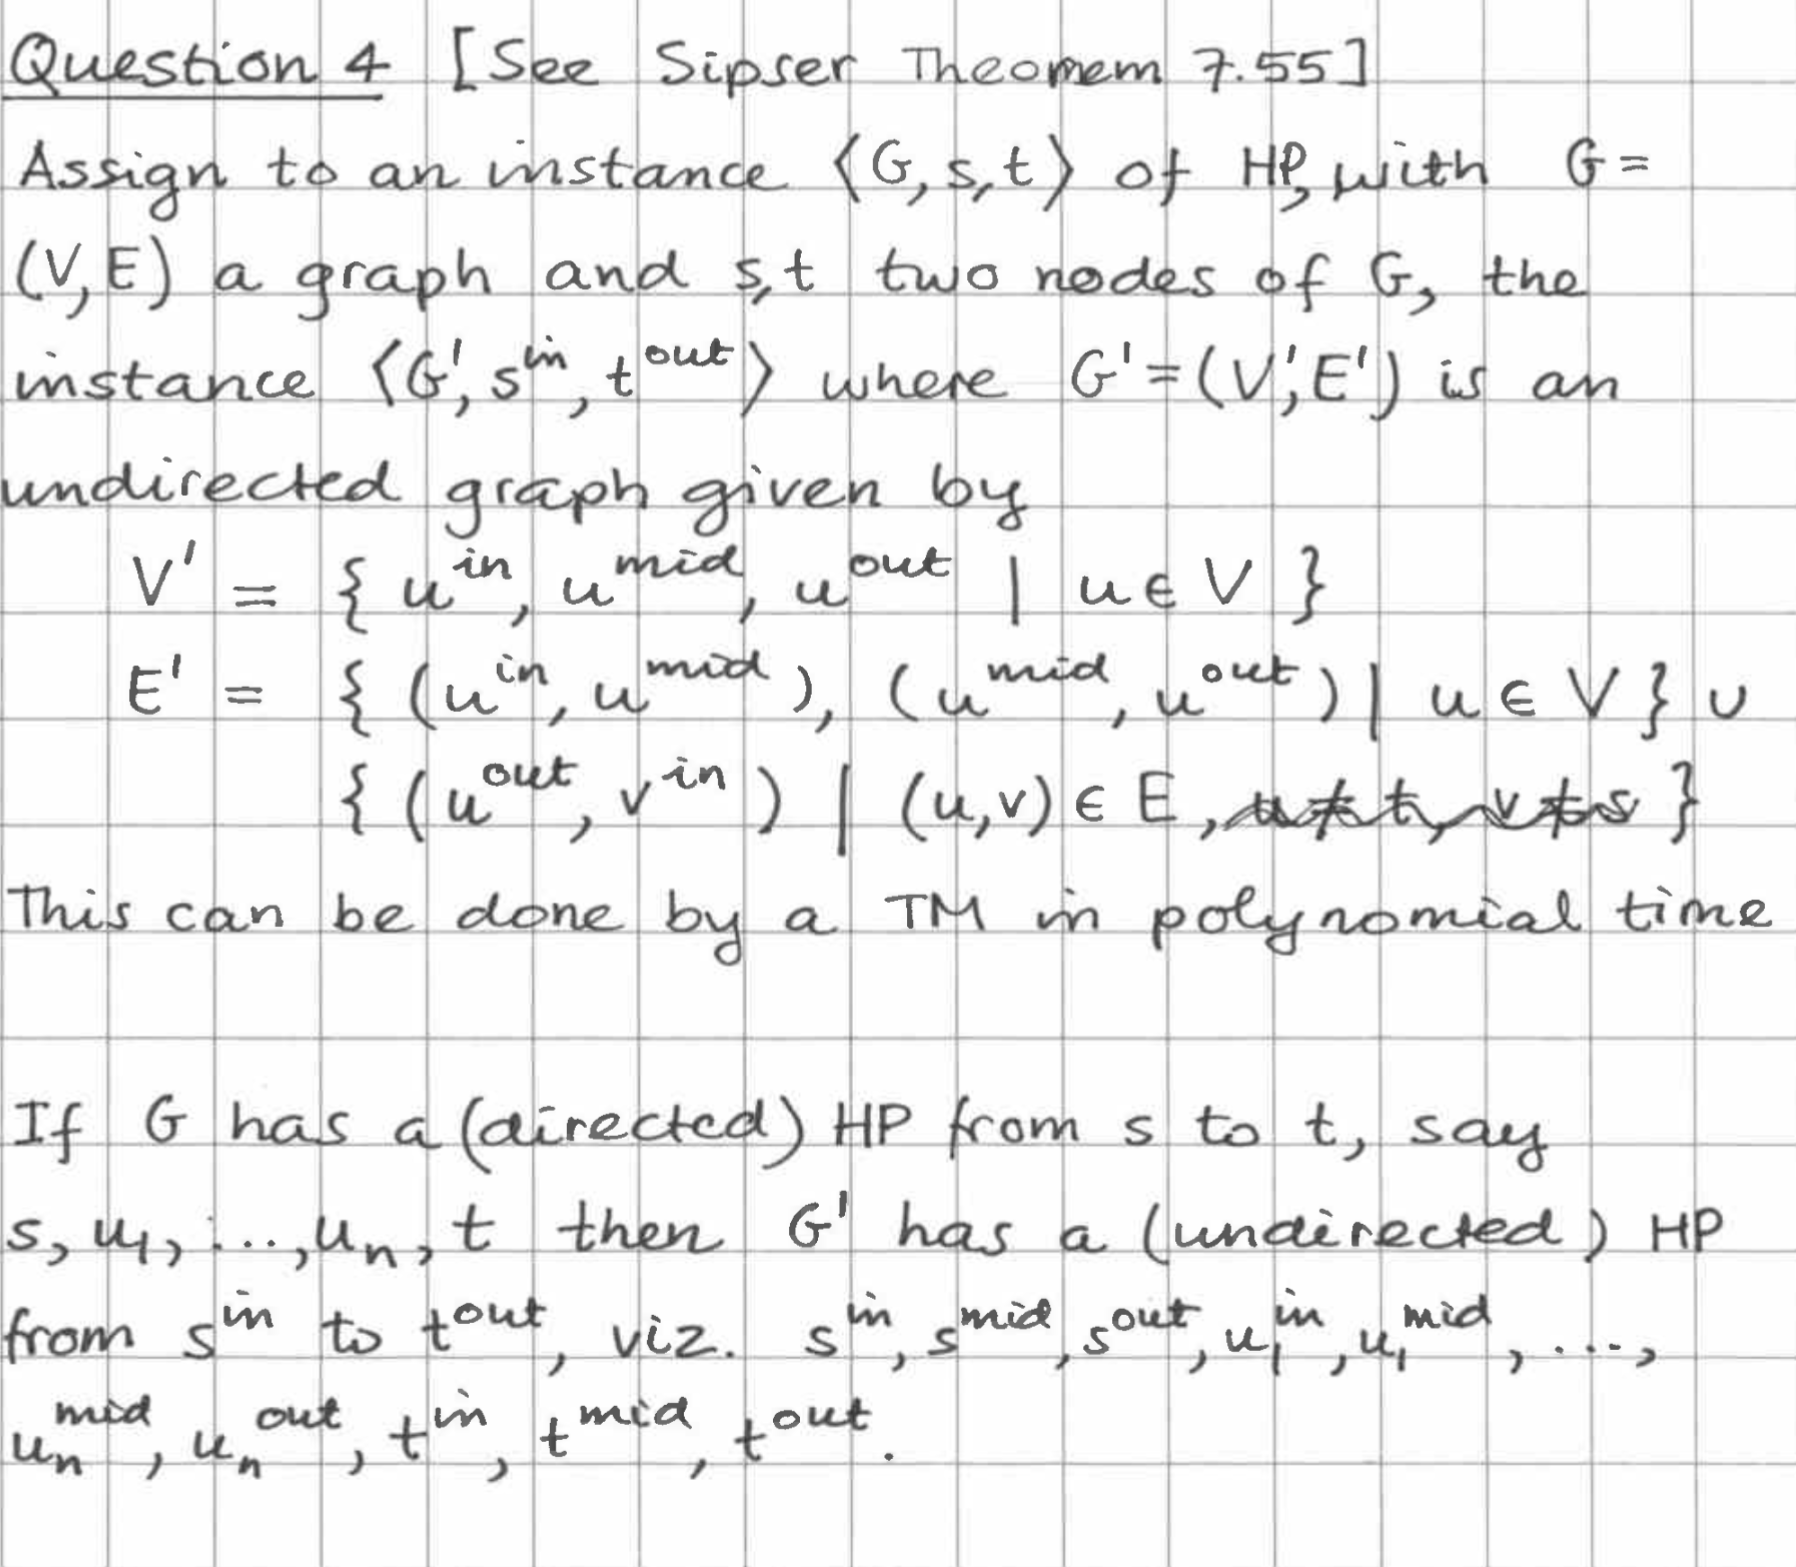 Question 4 [See Sipser Theomem 7.55]
Assign to an instance ⟨G, s, t⟩ of HP, with G =
(V, E) a graph and s, t two nodes of G, the
instance ⟨G', s^in, t^out⟩ where G' = (V', E') is an
undirected graph given by
V' = { u^in, u^mid, u^out | u ∈ V }
E' = { (u^in, u^mid), (u^mid, u^out) | u ∈ V } ∪
{ (u^out, v^in) | (u, v) ∈ E, u ≠ t, v ≠ s }
This can be done by a TM in polynomial time
If G has a (directed) HP from s to t, say
s, u_1, ..., u_n, t then G' has a (undirected) HP
from s^in to t^out, viz. s^in, s^mid, s^out, u_1^in, u_1^mid, ...,
u_n^mid, u_n^out, t^in, t^mid, t^out.